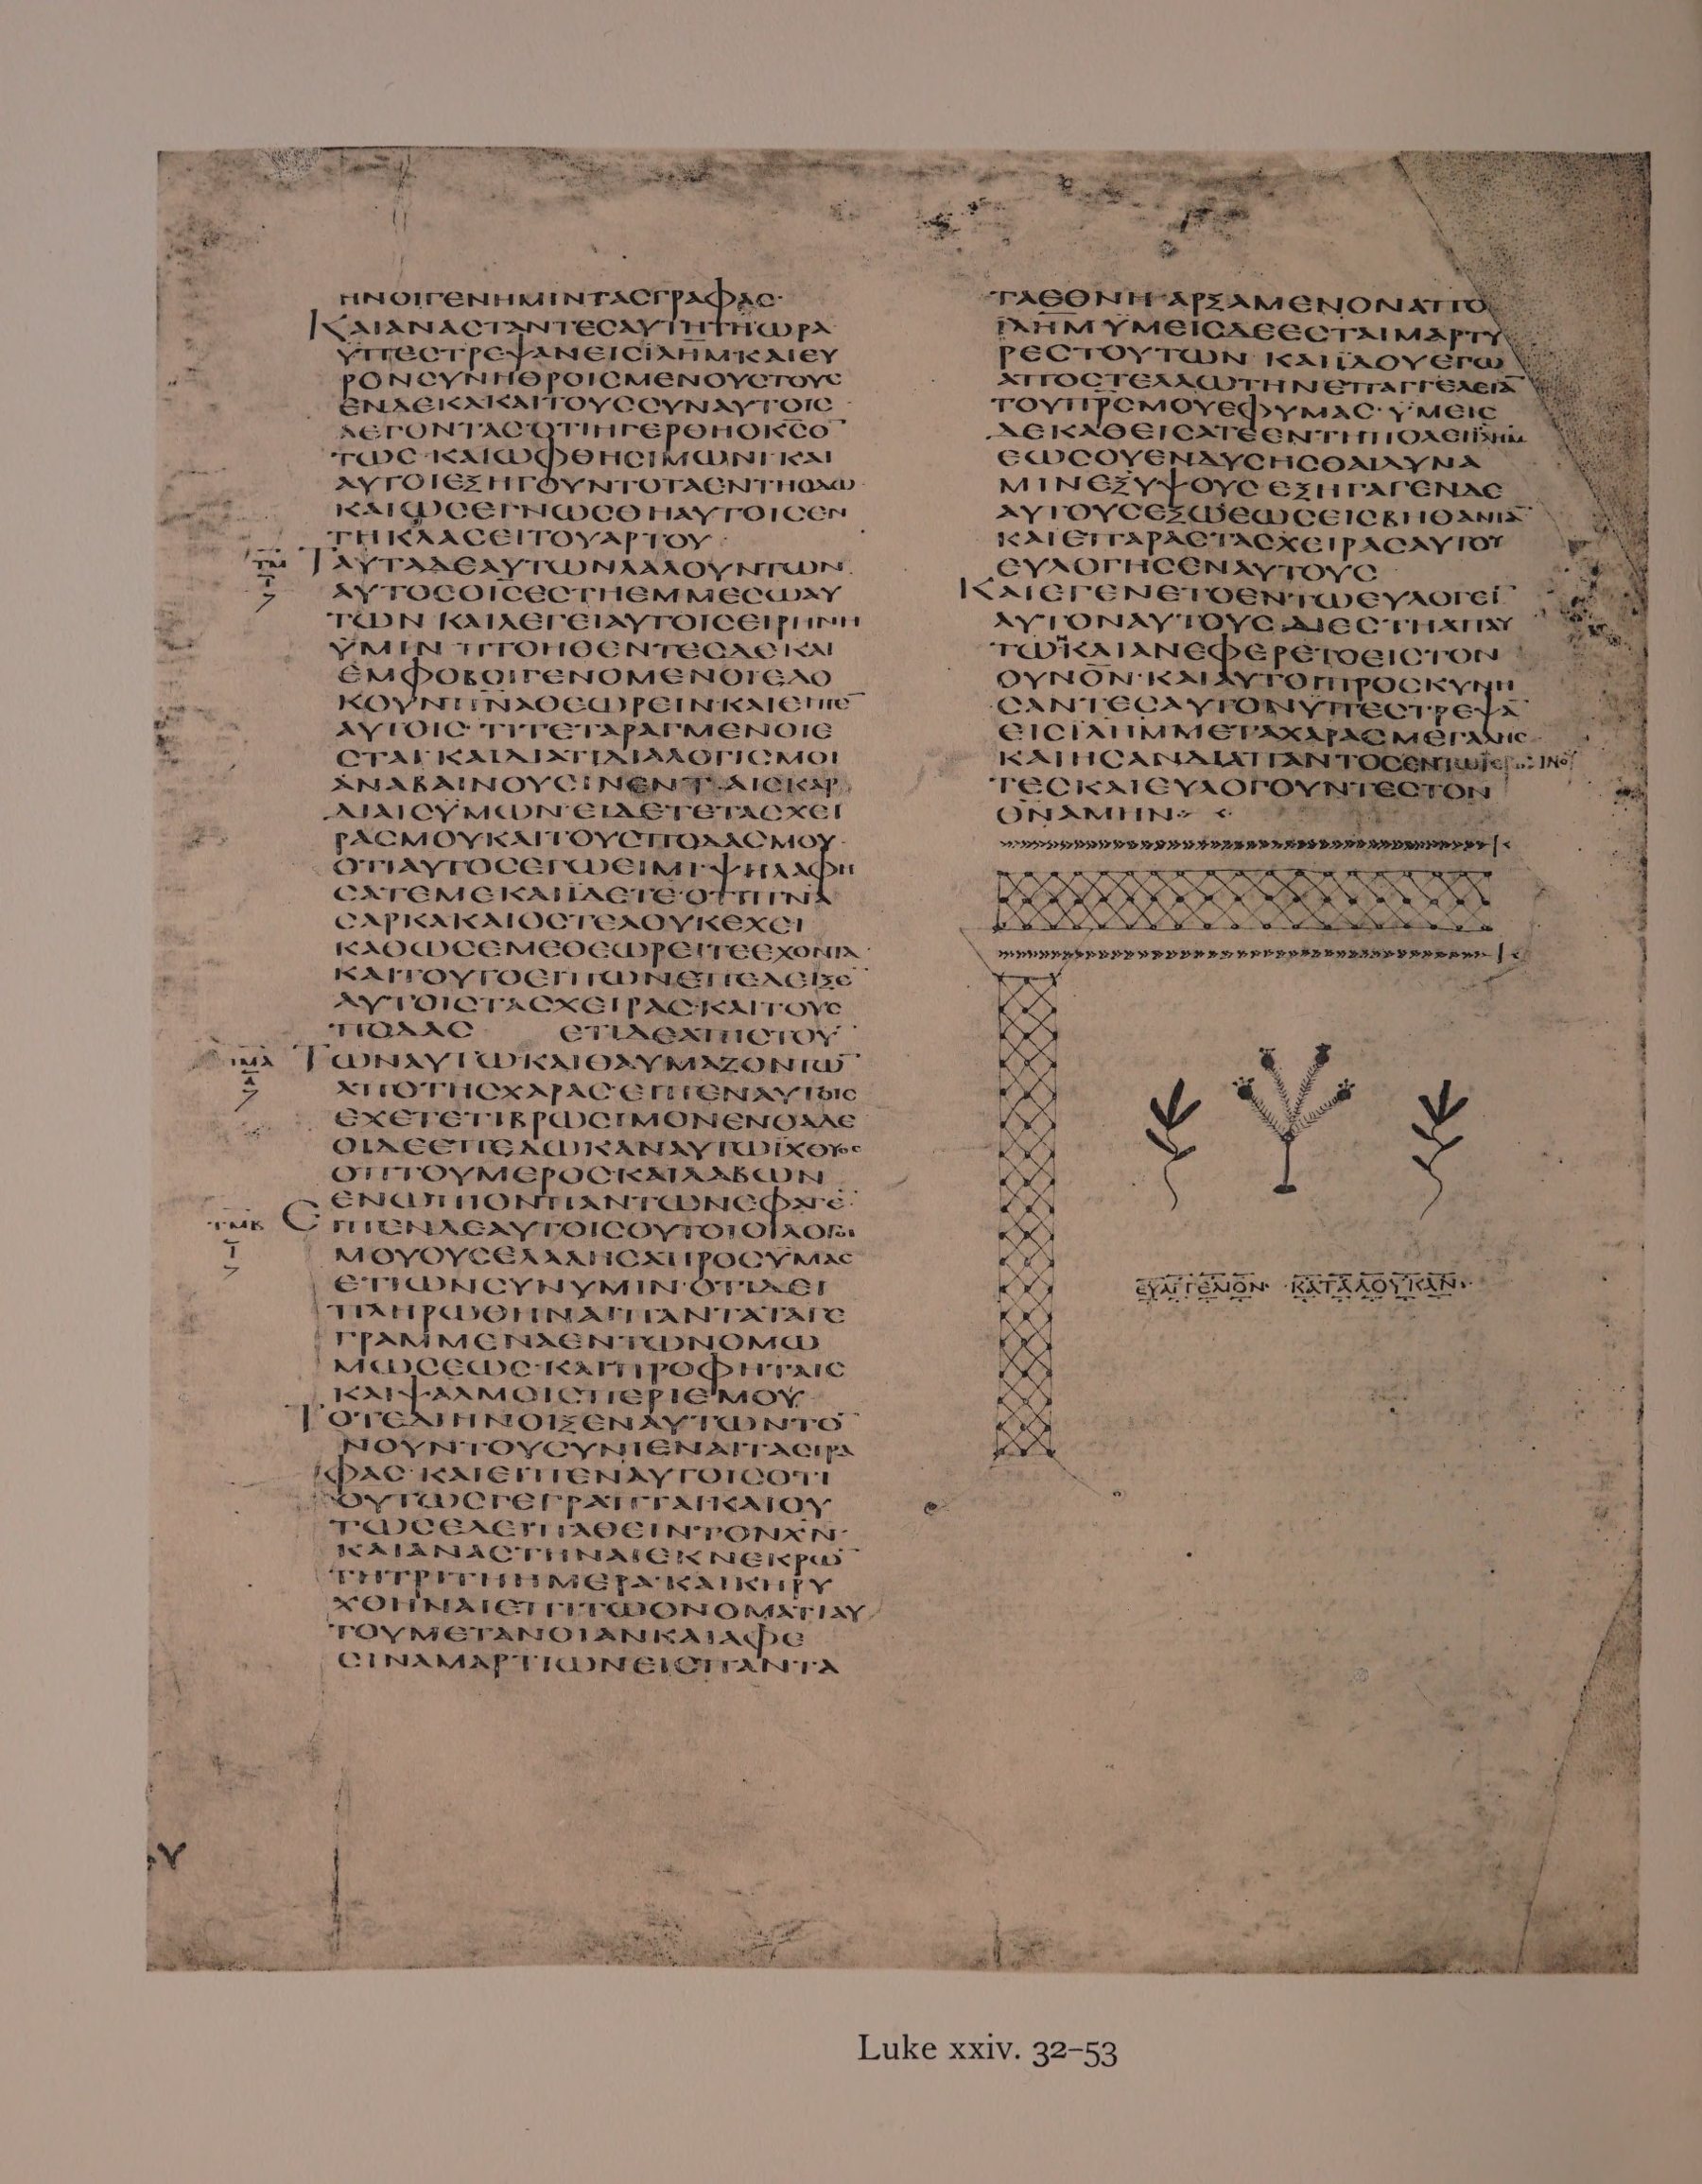 ΗΝΟΙΓΕΝΗΜΙΝΤΑϹΓΡΑΦΑϹ·
ΚΑΙΑΝΑϹΤΑΝΤΕϹΑΥΤΗΤΗΩΡΑ
ΥΠΕϹΤΡΕΨΑΝΕΙϹΪΛΗΜΚΑΙΕΥ
ΡΟΝϹΥΝΗΘΡΟΙϹΜΕΝΟΥϹΤΟΥϹ
ΕΝΔΕΚΑΚΑΙΤΟΥϹϹΥΝΑΥΤΟΙϹ
ΛΕΓΟΝΤΑϹΟΤΙΗΓΕΡΘΗΟΚ̅Ϲ̅Ο̅
ΤΩϹ·ΚΑΙΩΦΘΗϹΙΜΩΝΙΚΑΙ
ΑΥΤΟΙΕΞΗΓΟΥΝΤΟΤΑΕΝΤΗΟΔΩ
ΚΑΙΩϹΕΓΝΩϹΘΗΑΥΤΟΙϹΕΝ
ΤΗΚΛΑϹΕΙΤΟΥΑΡΤΟΥ·
ΤΜ ΤΑΥΤΑΔΕΑΥΤΩΝΛΑΛΟΥΝΤΩΝ
ΑΥΤΟϹΟΙϹΕϹΤΗΕΜΜΕϹΩΑΥ
ΤΩΝ ΚΑΙΛΕΓΕΙΑΥΤΟΙϹΕΙΡΗΝΗ
ΫΜΙΝ ΠΤΟΗΘΕΝΤΕϹΔΕΚΑΙ
ΕΜΦΟΒΟΙΓΕΝΟΜΕΝΟΙΕΔΟ
ΚΟΥΝΠ̅Ν̅Α̅ΘΕΩΡΕΙΝΚΑΙΕΙΠΕ̅
ΑΥΤΟΙϹ ΤΙΤΕΤΑΡΑΓΜΕΝΟΙΕ
ϹΤΑΙΚΑΙΔΙΑΤΙΔΙΑΛΟΓΙϹΜΟΙ
ΑΝΑΒΑΙΝΟΥϹΙΝΕΝΤΑΙϹΚΑΡ
ΔΙΑΙϹΫΜΩΝΕΙΔΕΤΕΤΑϹΧΕΙ
ΡΑϹΜΟΥΚΑΙΤΟΥϹΠΟΔΑϹΜΟΥ
ΟΤΙΑΥΤΟϹΕΓΩΕΙΜΙΨΗΛΑΦΗ
ϹΑΤΕΜΕΚΑΙΪΔΕΤΕΟΤΙΠ̅Ν̅Α̅
ϹΑΡΚΑΚΑΙΟϹΤΕΑΟΥΚΕΧΕΙ
ΚΑΘΩϹΕΜΕΘΕΩΡΕΙΤΕΕΧΟΝΤΑ
ΚΑΙΤΟΥΤΟΕΙΠΩΝΕΠΕΔΕΙΞΕ̅
ΑΥΤΟΙϹΤΑϹΧΕΙΡΑϹΚΑΙΤΟΥϹ
ΠΟΔΑϹ ΕΤΙΔΕΑΠΙϹΤΟΥ
ΤΜΑ ΤΩΝΑΥΤΩΚΑΙΘΑΥΜΑΖΟΝΤΩ̅
ΑΠΟΤΗϹΧΑΡΑϹ·ΕΙΠΕΝΑΥΤΟΙϹ
ΕΧΕΤΕΤΙΒΡΩϹΙΜΟΝΕΝΘΑΔΕ
ΟΙΔΕΕΠΕΔΩΚΑΝΑΥΤΩΪΧΘΥΟϹ
ΟΠΤΟΥΜΕΡΟϹΚΑΙΛΑΒΩΝ
ΕΝΩΠΙΟΝΠΑΝΤΩΝΕΦΑΓΕ̅
ΤΜΒ ΕΙΠΕΝΔΕΑΥΤΟΙϹΟΥΤΟΙΟΙΛΟΓΟΙ
ΜΟΥΟΥϹΕΛΑΛΗϹΑΠΡΟϹΫΜΑϹ
ΕΤΙΩΝϹΥΝΥΜΙΝ·ΟΤΙΔΕΙ
ΠΛΗΡΩΘΗΝΑΙΠΑΝΤΑΤΑΓΕ
ΓΡΑΜΜΕΝΑΕΝΤΩΝΟΜΩ
ΜΩϹΕΩϹ·ΚΑΙΠΡΟΦΗΤΑΙϹ
ΚΑΙΨΑΛΜΟΙϹΠΕΡΙΕΜΟΥ
ΤΟΤΕΔΙΗΝΟΙΞΕΝΑΥΤΩΝΤΟ̅
ΝΟΥΝΤΟΥϹΥΝΙΕΝΑΙΤΑϹΓΡΑ
ΦΑϹ·ΚΑΙΕΙΠΕΝΑΥΤΟΙϹΟΤΙ
ΟΥΤΩϹΓΕΓΡΑΠΤΑΙΚΑΙΟΥ
ΤΩϹΕΔΕΙΠΑΘΕΙΝΤΟΝΧ̅Ν̅
ΚΑΙΑΝΑϹΤΗΝΑΙΕΚΝΕΚΡΩ̅
ΤΗΤΡΙΤΗΗΜΕΡΑ·ΚΑΙΚΗΡΥ
ΧΘΗΝΑΙΕΠΙΤΩΟΝΟΜΑΤΙΑΥ
ΤΟΥΜΕΤΑΝΟΙΑΝΚΑΙΑΦΕ
ϹΙΝΑΜΑΡΤΙΩΝΕΙϹΠΑΝΤΑ
ΤΑΕΘΝΗ·ΑΡΞΑΜΕΝΟΝΑΠΟ
ΙΛΗΜ ΫΜΕΙϹΔΕΕϹΤΑΙΜΑΡΤΥ
ΡΕϹΤΟΥΤΩΝ ΚΑΙΪΔΟΥΕΓΩ
ΑΠΟϹΤΕΛΛΩΤΗΝΕΠΑΓΓΕΛΕΙΑ̅
ΤΟΥΠΡ̅Ϲ̅ΜΟΥΕΦΥΜΑϹ·ΫΜΕΙϹ
ΔΕΚΑΘΕΙϹΑΤΕΕΝΤΗΠΟΛΕΙΪΛΗΜ
ΕΩϹΟΥΕΝΔΥϹΗϹΘΑΙΔΥΝΑ
ΜΙΝΕΞΥΨΟΥϹΕΞΗΓΑΓΕΝΔΕ
ΑΥΤΟΥϹΕΞΩΕΩϹΕΙϹΒΗΘΑΝΙΑ̅
ΚΑΙΕΠΑΡΑϹΤΑϹΧΕΙΡΑϹΑΥΤΟΥ
ΕΥΛΟΓΗϹΕΝΑΥΤΟΥϹ
ΚΑΙΕΓΕΝΕΤΟΕΝΤΩΕΥΛΟΓΕΙ̅
ΑΥΤΟΝΑΥΤΟΥϹΔΙΕϹΤΗΑΠΑΥ
ΤΩ̅ΚΑΙΑΝΕΦΕΡΕΤΟΕΙϹΤΟΝ
ΟΥΝΟΝ·ΚΑΙΑΥΤΟΙΠΡΟϹΚΥΝΗ
ϹΑΝΤΕϹΑΥΤΟΝΥΠΕϹΤΡΕΨΑ̅
ΕΙϹΪΛΗΜΜΕΤΑΧΑΡΑϹΜΕΓΑΛΗϹ
ΚΑΙΗϹΑΝΔΙΑΠΑΝΤΟϹΕΝΤΩΙΕΡΩ
ΤΕϹΚΑΙΕΥΛΟΓΟΥΝΤΕϹΤΟΝ
Θ̅Ν̅ΑΜΗΝ
ΕΥΑΓΓΕΛΙΟΝ· ΚΑΤΑΛΟΥΚΑΝ·
Luke xxiv. 32–53